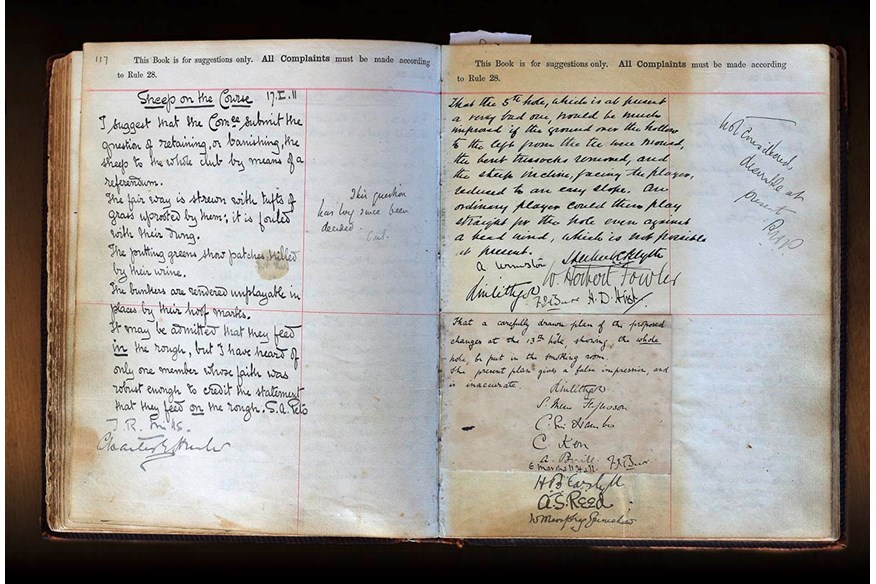 117
This Book is for suggestions only. All Complaints must be made according
to Rule 28.
Sheep on the Course 17.II.11
I suggest that the Comee submit the
question of retaining, or banishing, the
sheep to the whole club by means of a
referendum.
The fair way is strewn with tufts of
grass uprooted by them; it is fouled
with their dung.
The putting greens show patches killed
by their urine.
The bunkers are rendered unplayable in
places by their hoof marks.
It may be admitted that they feed
in the rough, but I have heard of
only one member whose faith was
robust enough to credit the statement
that they feed on the rough. S.A. Peto
This question
has long since been
decided.
This Book is for suggestions only. All Complaints must be made according
to Rule 28.
That the 5th hole, which is at present
a very bad one, would be much
improved if the ground over the hollow
to the left from the tee were mowed,
the bent tussocks removed, and
the steep incline, facing the player,
reduced to an easy slope. An
ordinary player could then play
straight for the hole even against
a head wind, which is not possible
at present.
W. Herbert Fowler
Linlithgow
H.D.
not considered
desirable at
present
That a carefully drawn plan of the proposed
changes at the 13th hole, showing the whole
hole, be put in the smoking room.
The present plan gives a false impression, and
is inaccurate.
Linlithgow
E. Marshall Hall
A.S. Reed